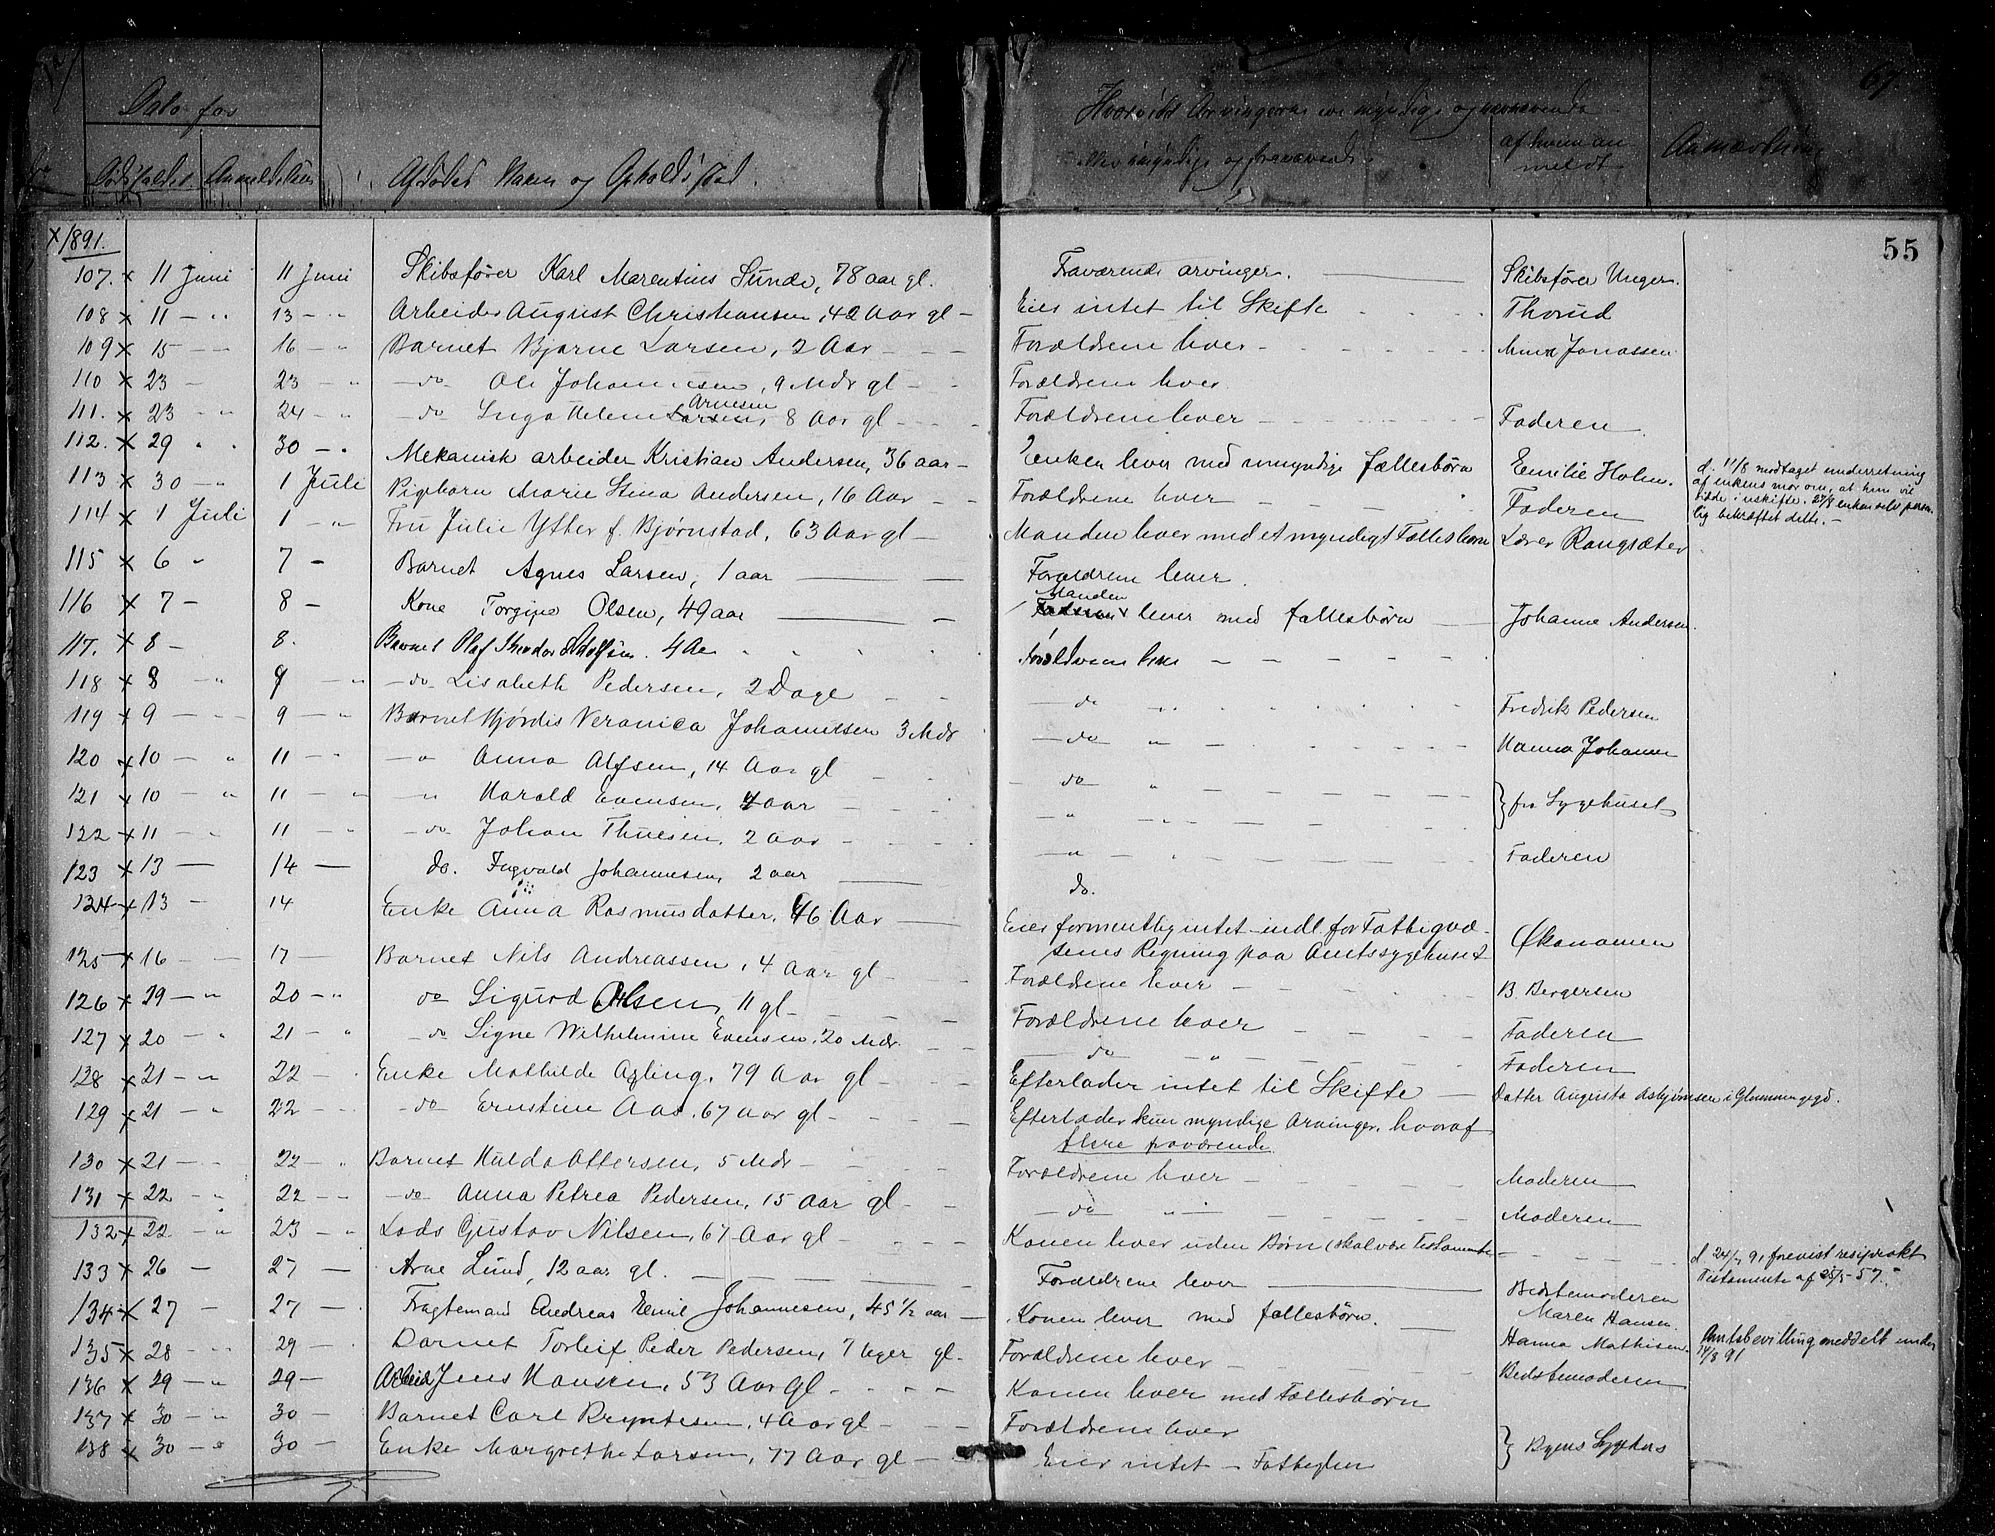 Dato for
Dødsfaldet Anmeldelsen
Afdødes Navn og Opholdssted.
Hvorvidt Arvingerne ere myndige og nærværende
eller umyndige og fraværende.
af hvem anmeldt
67.
55
1891.
107. 11 Juni 11 Juni Skibsfører Karl Marentius Sunde, 78 aar gl. Fraværende arvinger. Skibsfører Unger.
108 11 - " 13 - " Arbeider August Christiansen, 42 Aar gl - Eier intet til Skifte Thorud
109 15 - - 16 - " Barnet Bjarne Larsen, 2 Aar Forældrene lever Anna Jonassen
110 23 - 23 - " do Ole Johannesen, 9 Mdr gl Forældrene lever
111. 23 - " 24 - " do Inga Helene Larsen Arnesen, 8 Aar gl Forældrene lever Faderen
112. 29 " " 30 - " Mekanisk arbeider Kristian Andersen, 36 aar - Enken lever med umyndige fællesbørn Emilie Holm. d. 11/8 modtaget underretning
af enkens mor om, at hun vil
sidde i uskifte. 27/8 enken selv person-
lig bekræftet dette. -
113 30 - " 1 Juli Pigebarn Marie Stina Andersen, 16 Aar Forældrene lever Faderen
114 1 Juli 1 - " Fru Julie Ytter f. Bjørnstad, 63 Aar gl - Manden lever med et myndigt Fællesbarn Lærer Rangsæter
115 6 " 7 - Barnet Agnes Larsen, 1 aar Forældrene lever.
116 7 - 8 - Kone Torgine Olsen, 49 aar Faderen Manden lever med fællesbørn Johanne Andersen.
117. 8 - 8. Barnet Olaf Theodor Adolfsen. 4 Aar Forældrene lever
118 8 - " 9 - " do Lisabeth Pedersen, 2 Dage do Fredrik Pedersen
119 9 - - 9 - " Barnet Hjørdis Veronica Johannesen 3 Mdr do Hanna Johansen
120 10 - " 11 - " " Anna Alfsen, 14 Aar gl do " } fra Sygehuset
121 10 - " 11 - " " Harald Evensen, 4 aar "
122 11 - " 11 - " do Johan Thuesen, 2 Aar " Faderen
123 13 - 14 - do. Ingvald Johannesen, 2 aar do.
124 13 - 14 Enke Anna Rasmusdatter, 46 Aar Eier formentlig intet - indl. for Fattigvæ-
senets Regning paa Amtssygehuset Økonomen
125 16 - 17 - Barnet Nils Andreassen, 4 Aar gl Forældrene lever B. Bergersen
126 19 - " 20 - " do Sigurd Olsen, 11 gl - Forældrene lever Faderen
127 20 - " 21 - " do Signe Wilhelmine Evensen, 20 Mdr. do " Faderen
128 21 - " 22 - Enke Mathilde Agling, 79 Aar gl - Efterlader intet til Skifte Datter Augusta Asbjørnsen i Glemmingegd.
129 21 - " 22 - " do Ernstine Aas, 67 Aar gl - Efterlader kun myndige Arvinger, hvoraf
flere fraværende
130 21 - " 22 - " Barnet Hulda Ottersen, 5 Mdr Forældrene lever Moderen
131 22 - " 22 - " do Anna Petrea Pedersen, 15 Aar gl do " Moderen
132 22 - " 23 - " Lods Gustav Nilsen, 67 Aar gl Konen lever uden Børn (skal være Testamente d. 24/7 91 forevist resiprokt
Testamente af 25/5 57.
133 26 - 27 - Arne Lund, 12 aar gl. Forældrene lever Bedstemoderen
134 27 - 27 - Fragtemand Andreas Emil Johannesen, 45 1/2 aar - Konen lever med fællesbørn. Maren Hansen
135 28 - " 29 - Barnet Torleif Peder Pedersen, 7 Uger gl. Forældrene lever Hanna Mathisen. Amtsbevilling meddelt under
14/8 91
136 29 - " 29 - Arbeid Jens Hansen, 53 Aar gl Konen lever med Fællesbørn Bedstemoderen
137 30 - " 30 - Barnet Carl Bryntesen, 4 Aar gl Forældrene lever } Byens Sygehus
138 30 - " 30 - Enke Margrethe Larsen, 77 Aar gl - Eier intet - Fattiglem